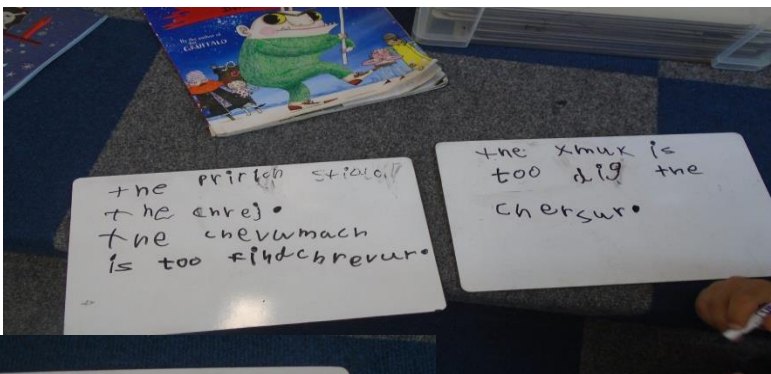 By the author of
the GRUFFALO
the prirtch
the chrej.
the chevwmach
is too findchrevur.
the xmux is
too dig the
chersur.